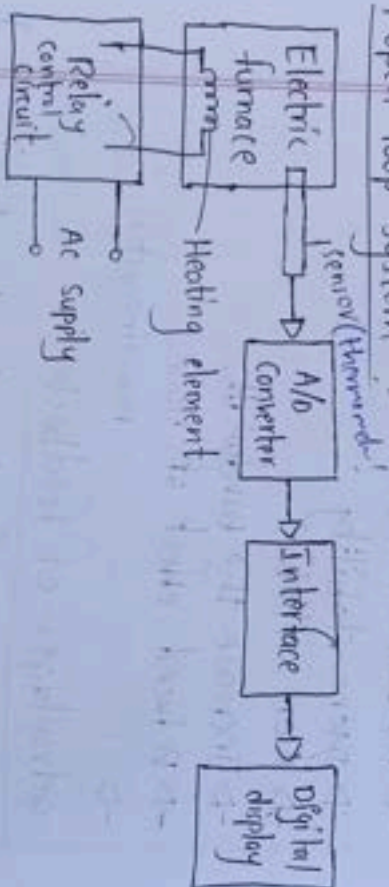 Electric
furnace
sensor
A/D
Converter
Interface
Digital
display
Heating element
Relay
control
circuit
Ac supply